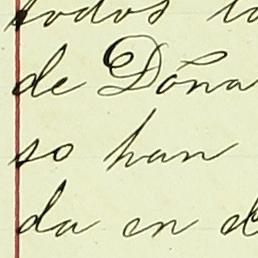 todos
de Doña
so han
da en